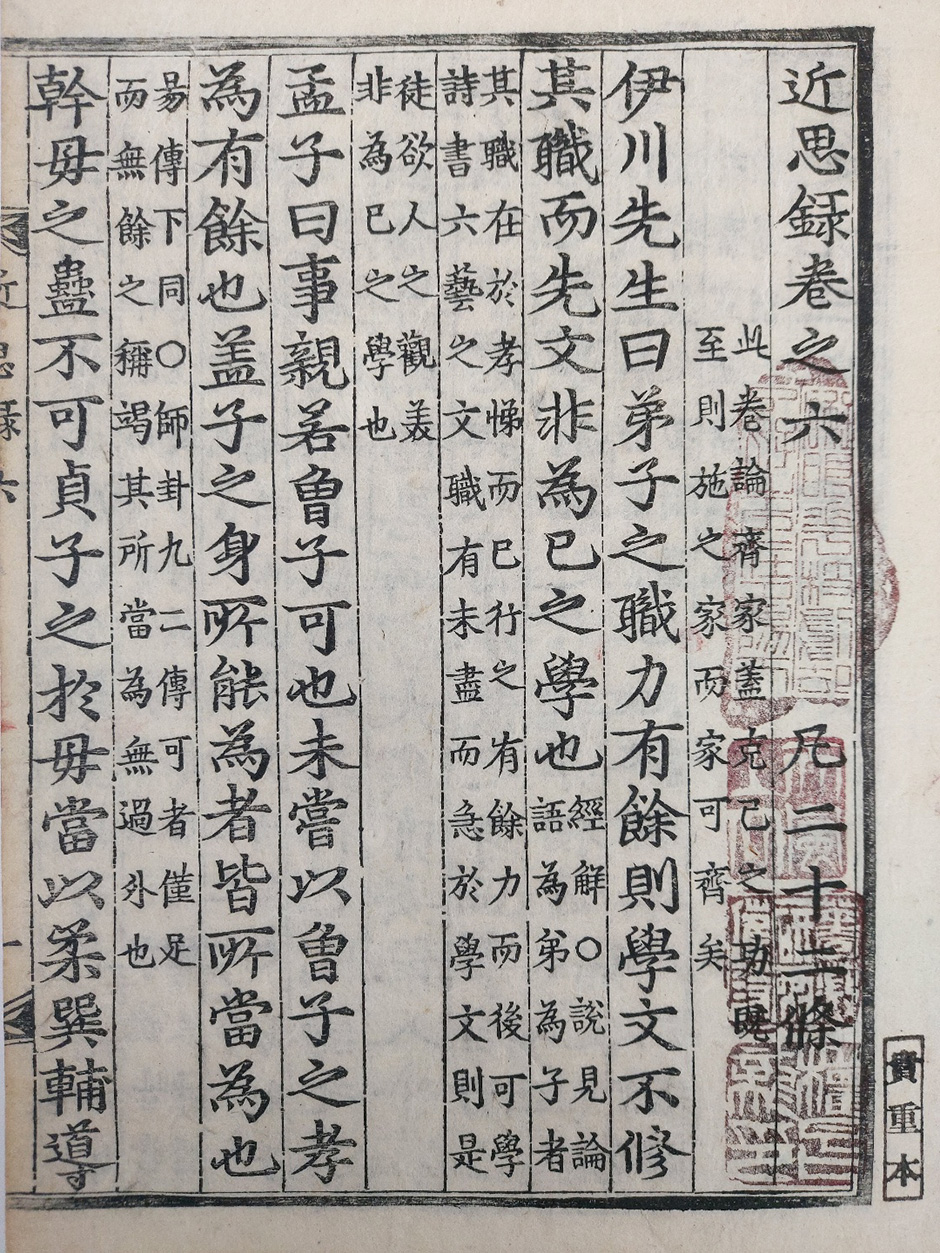 近思録卷之六 凡二十二條
此卷論齊家蓋克己之功既
至則施之家而家可齊矣
伊川先生曰弟子之職力有餘則學文不修
其職而先文非為已之學也
經解○說見論
語為弟為子者
其職在於孝悌而已行之有餘力而後可學
詩書六藝之文職有未盡而急於學文則是
徒欲人之觀美
非為已之學也
孟子曰事親若曾子可也未嘗以曾子之孝
為有餘也盖子之身所能為者皆所當為也
易傳下同○師卦九二傳可者僅足
而無餘之稱竭其所當為無過外也
幹母之蠱不可貞子之於母當以柔巽輔導
近思錄六
貴重本